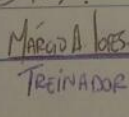 MÁRCIO A. LOPES
TREINADOR